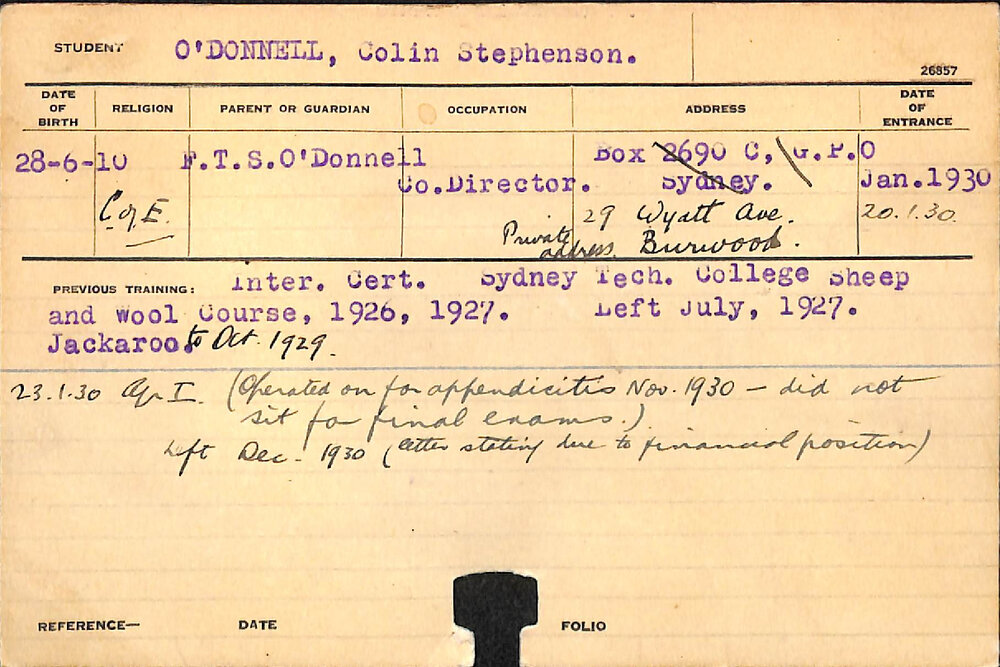 STUDENT O'DONNELL, Colin Stephenson.
26857
DATE OF BIRTH RELIGION PARENT OR GUARDIAN OCCUPATION ADDRESS DATE OF ENTRANCE
28-6-10 F.T.S.O'Donnell Box 2690 C, G.P.O
Co.Director. Sydney. Jan.1930
C of E. 29 Wyatt Ave. 20.1.30.
Private address Burwood.
PREVIOUS TRAINING: Inter. Cert. Sydney Tech. College Sheep
and Wool Course, 1926, 1927. Left July, 1927.
Jackaroo. to Oct. 1929.
23.1.30 Agr I. (Operated on for appendicitis Nov. 1930 – did not
sit for final exams.)
Left Dec. 1930 (letter stating due to financial position)
REFERENCE— DATE FOLIO